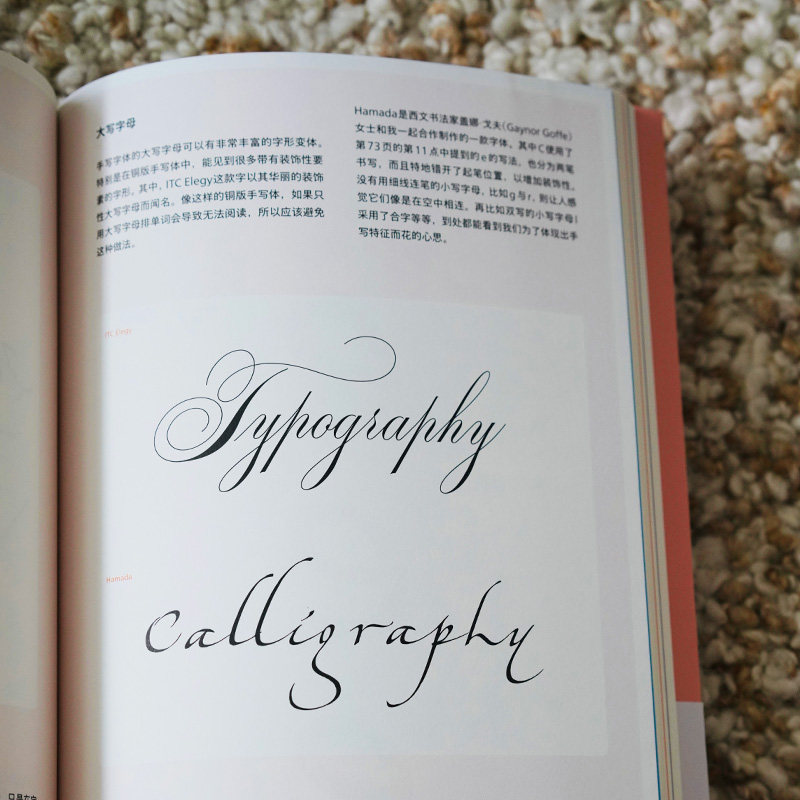 大写字母
手写字体的大写字母可以有非常丰富的字形变体。
特别是在铜版手写体中，能见到很多带有装饰性要
素的字形，其中，ITC Elegy这款字以其华丽的装饰
性大写字母而闻名。像这样的铜版手写体，如果只
用大写字母排单词会导致无法阅读，所以应该避免
这种做法。
Hamada是西文书法家盖娜·戈夫（Gaynor Goffe）
女士和我一起合作制作的一款字体，其中C使用了
第73页的第11点中提到的e的写法，也分为两笔
书写，而且特地错开了起笔位置，以增加装饰性。
没有用细线连笔的小写字母，比如g与r，则让人感
觉它们像是在空中相连。再比如双写的小写字母l
采用了合字等等，到处都能看到我们为了体现出手
写特征而花的心思。
ITC Elegy
Typography
Hamada
Calligraphy